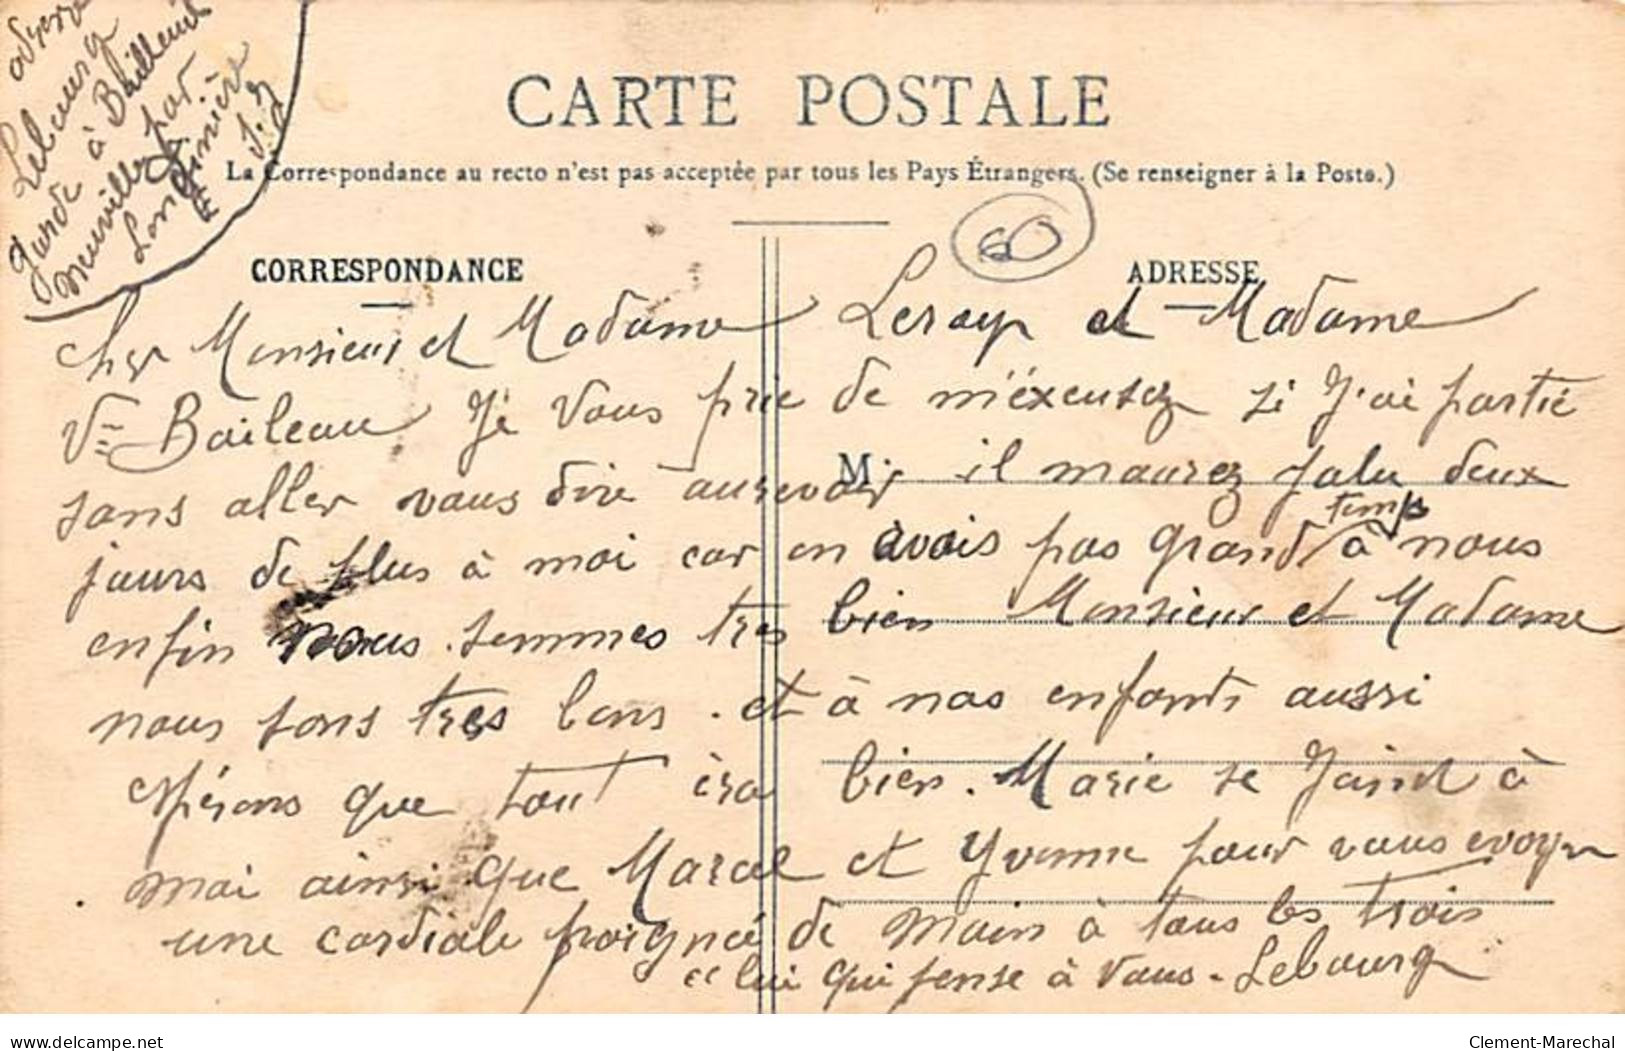 adresse
Lebourg
garde à Bailleul
neuville par
Longinière
CARTE POSTALE
La Correspondance au recto n'est pas acceptée par tous les Pays Étrangers. (Se renseigner à la Poste.)
60
CORRESPONDANCE
ADRESSE
Cher Monsieur et Madame Leroys et Madame
Vve Baileau Je Vous prie de m'éxcusez si J'ai partie
sans aller vous dire aurevoir il maurez falu deux
M.
temps
jours de plus à moi car on avais pas grand à nous
enfin nous sommes tres bien Monsieur et Madame
nous sons tres bons. et à nos enfants aussi
espérons que tout ira bien. Marie se Joind à
moi ainsi que Marcel et Yvonne pour vous evoyer
une cordiale poignée de main à tous les trois
celui qui pense à Vous - Lebourg
delcampe.net
Clement-Marechal